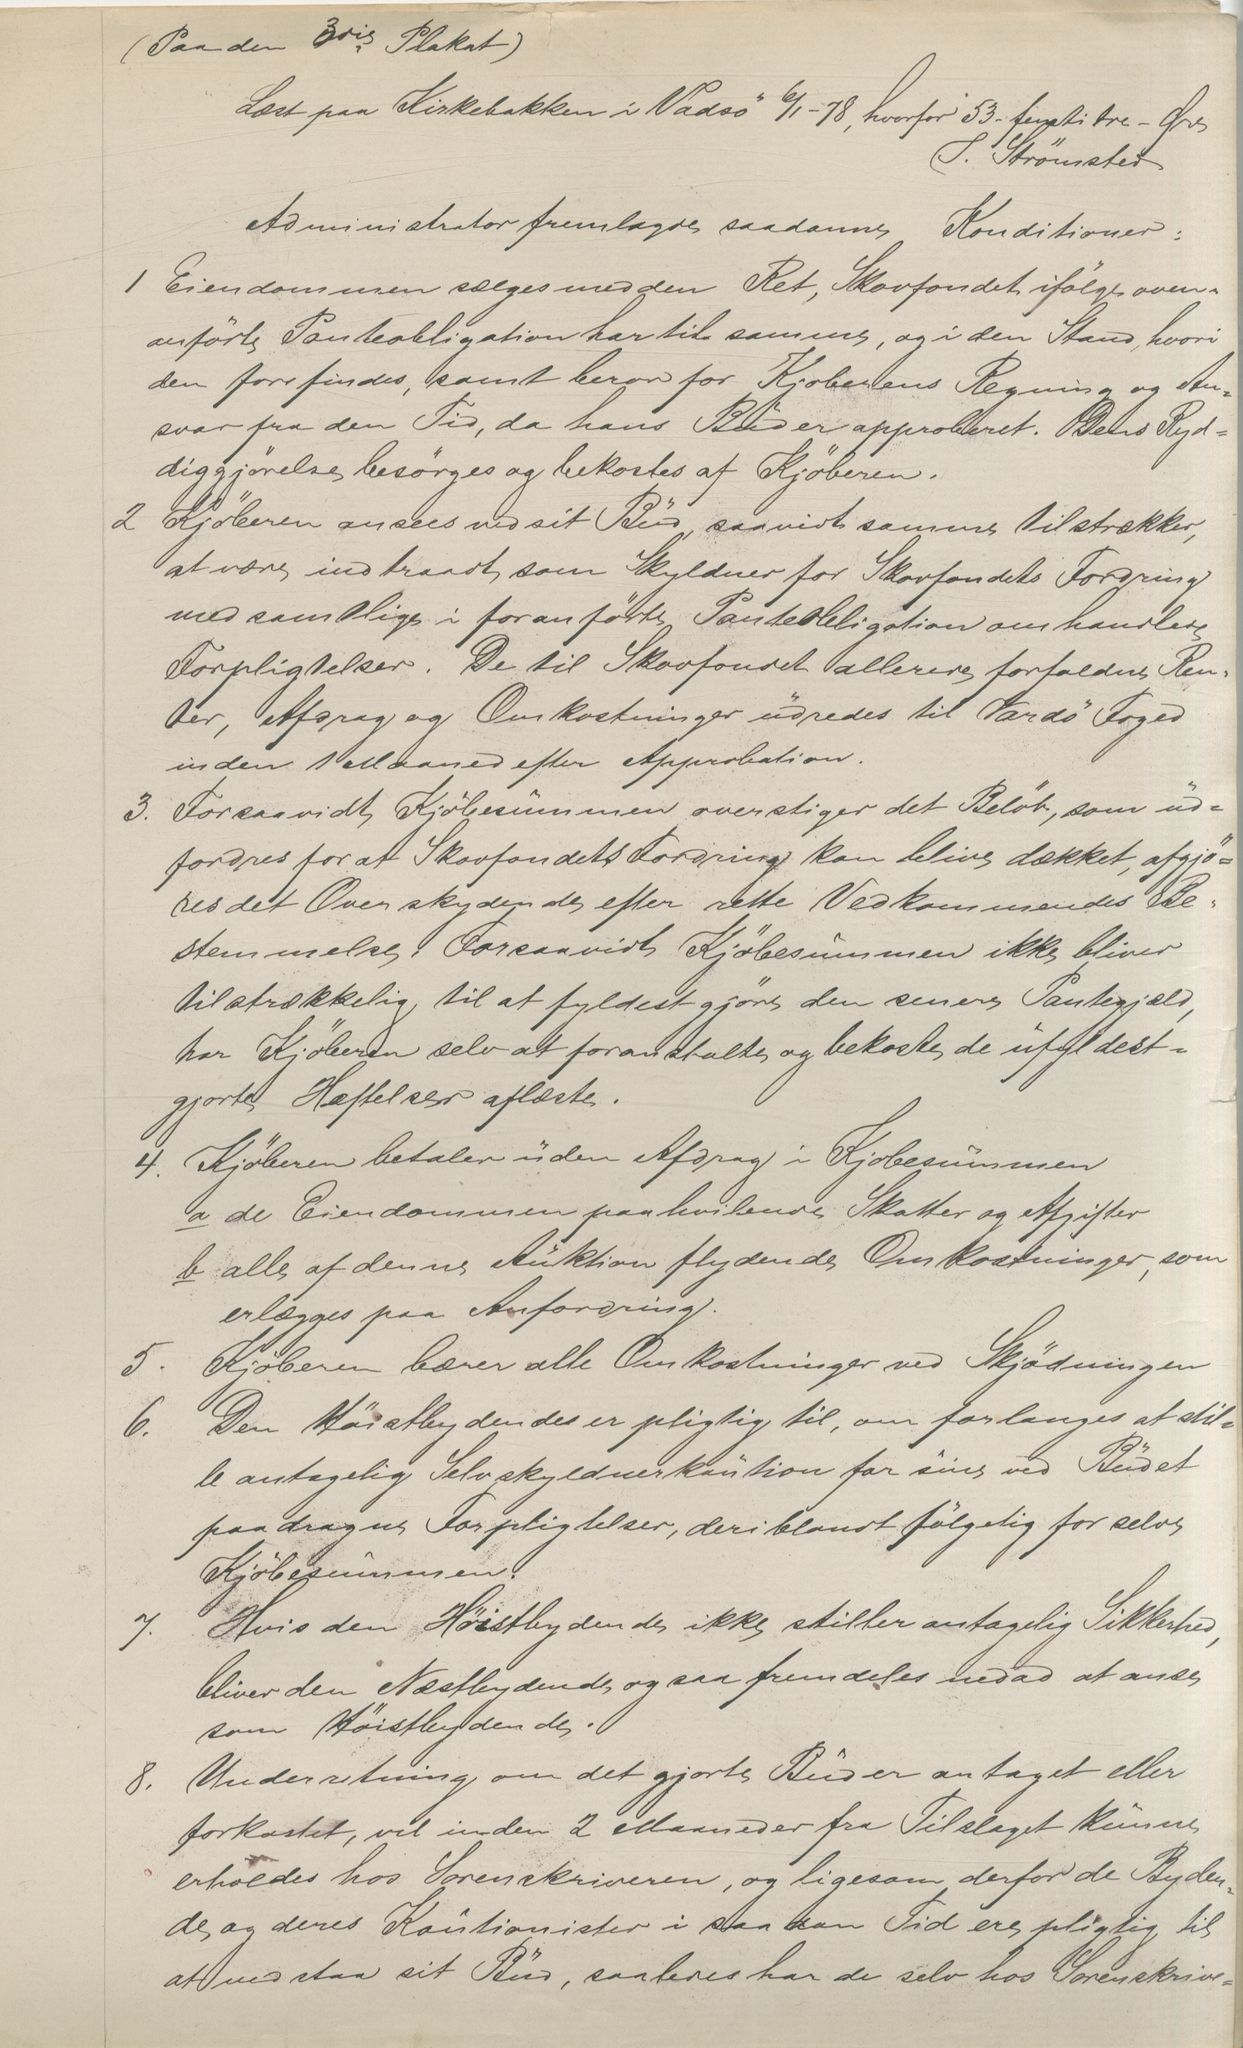 (Paa den 3die Plakat)
Læst paa Kirkebakken i Vadsö 6/1-78, hvorfor 53 - femti tre - Öre
S. Strömsted
Administrator fremlagde saadanne Konditioner:
1 Eiendommen sælges med den Ret, Skovfondet ifölge oven-
anförte Panteobligation har til samme, og i den Stand, hvori
den forefindes, samt beror for Kjöberens Regning og An-
svar fra den Tid, da hans Bud er approberet. Dens Ryd-
diggjörelse besörges og bekostes af Kjöberen.
2 Kjöberen ansees ved sit Bud, saavidt samme tilstrækker,
at være indtraadt som Skyldner for Skovfondets Fordring
med samtlige i foranförte Panteobligation omhandlede
Forpligtelser. De til Skovfondet allerede forfaldne Ren-
ter, Afdrag og Omkostninger udredes til Vardö Foged
inden 1 Maaned efter Approbation.
3. Forsaavidt Kjöbesummen overstiger det Belöb, som ud-
fordres for at Skovfondets Fordring kan blive dækket, afgjö-
res det Overskydende efter rette Vedkommendes Be-
stemmelse. Forsaavidt Kjöbesummen ikke bliver
tilstrækkelig til at fyldestgjöre den senere Pantegjæld,
har Kjöberen selv at foranstalte og bekoste de ufyldest-
gjorte Heftelser aflæste.
4. Kjöberen betaler uden Afdrag i Kjöbesummen
a de Eiendommen paahvilende Skatter og Afgifter
b alle af denne Auktion flydende Omkostninger, som
erlægges paa Anfordring.
5. Kjöberen bærer alle Omkostninger ved Skjödningen
6. Den Höistbydende er pligtig til, om forlanges at stil-
le antagelig Selvskyldnerkaution for sine ved Budet
paadragne Forpligtelser, deriblandt fölgelig for selve
Kjöbesummen.
7. Hvis den Höistbydende ikke stiller antagelig Sikkerhed,
bliver den Næstbydende og saa fremdeles nedad at anse
som Höistbydende.
8. Underretning om det gjorte Bud er antaget eller
forkastet, vil inden 2 Maaneder fra Tilslaget kunne
erholdes hos Sorenskriveren, og ligesom derfor de Byden-
de og deres Kautionister i saadan Tid ere pligtig til
at vedstaa sit Bud, saaledes har de selv hos Sorenskrive-